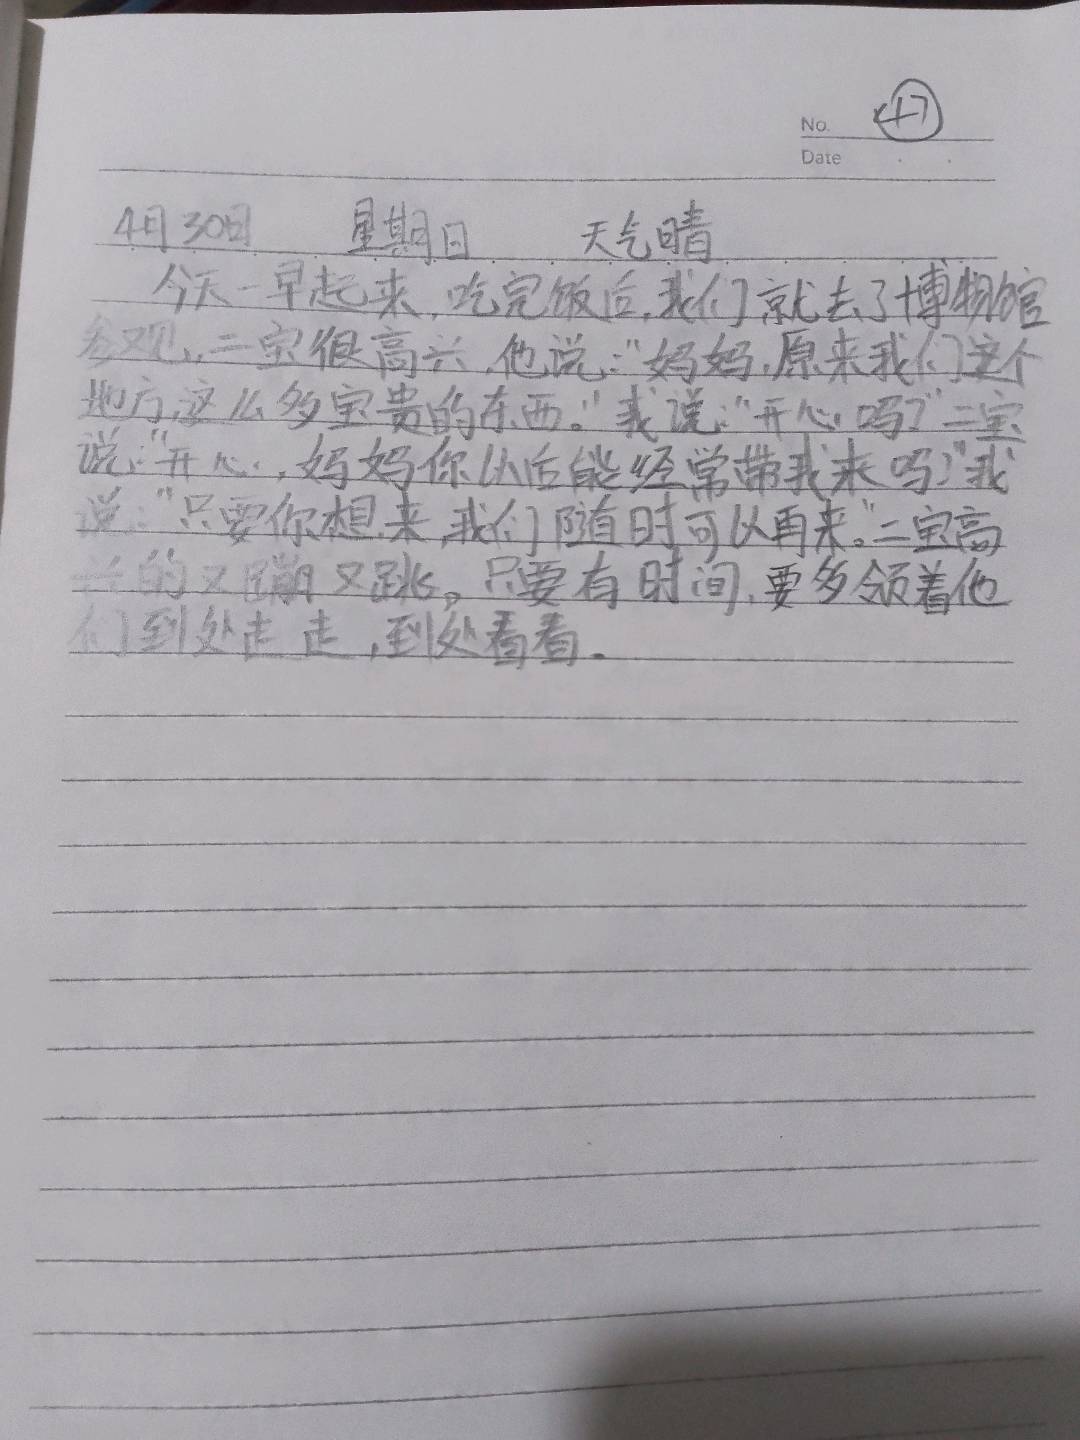 No. 47
Date
4月30日 星期日 天气晴
今天一早起来,吃完饭后,我们就去了博物馆
参观,二宝很高兴,他说:"妈妈,原来我们这个
地方,这么多宝贵的东西。"我说:"开心吗?"二宝
说:"开心,妈妈你以后能经常带我来吗?"我
说:"只要你想来,我们随时可以再来。"二宝高
兴的又蹦又跳。只要有时间,要多领着他
们到处走走,到处看看.